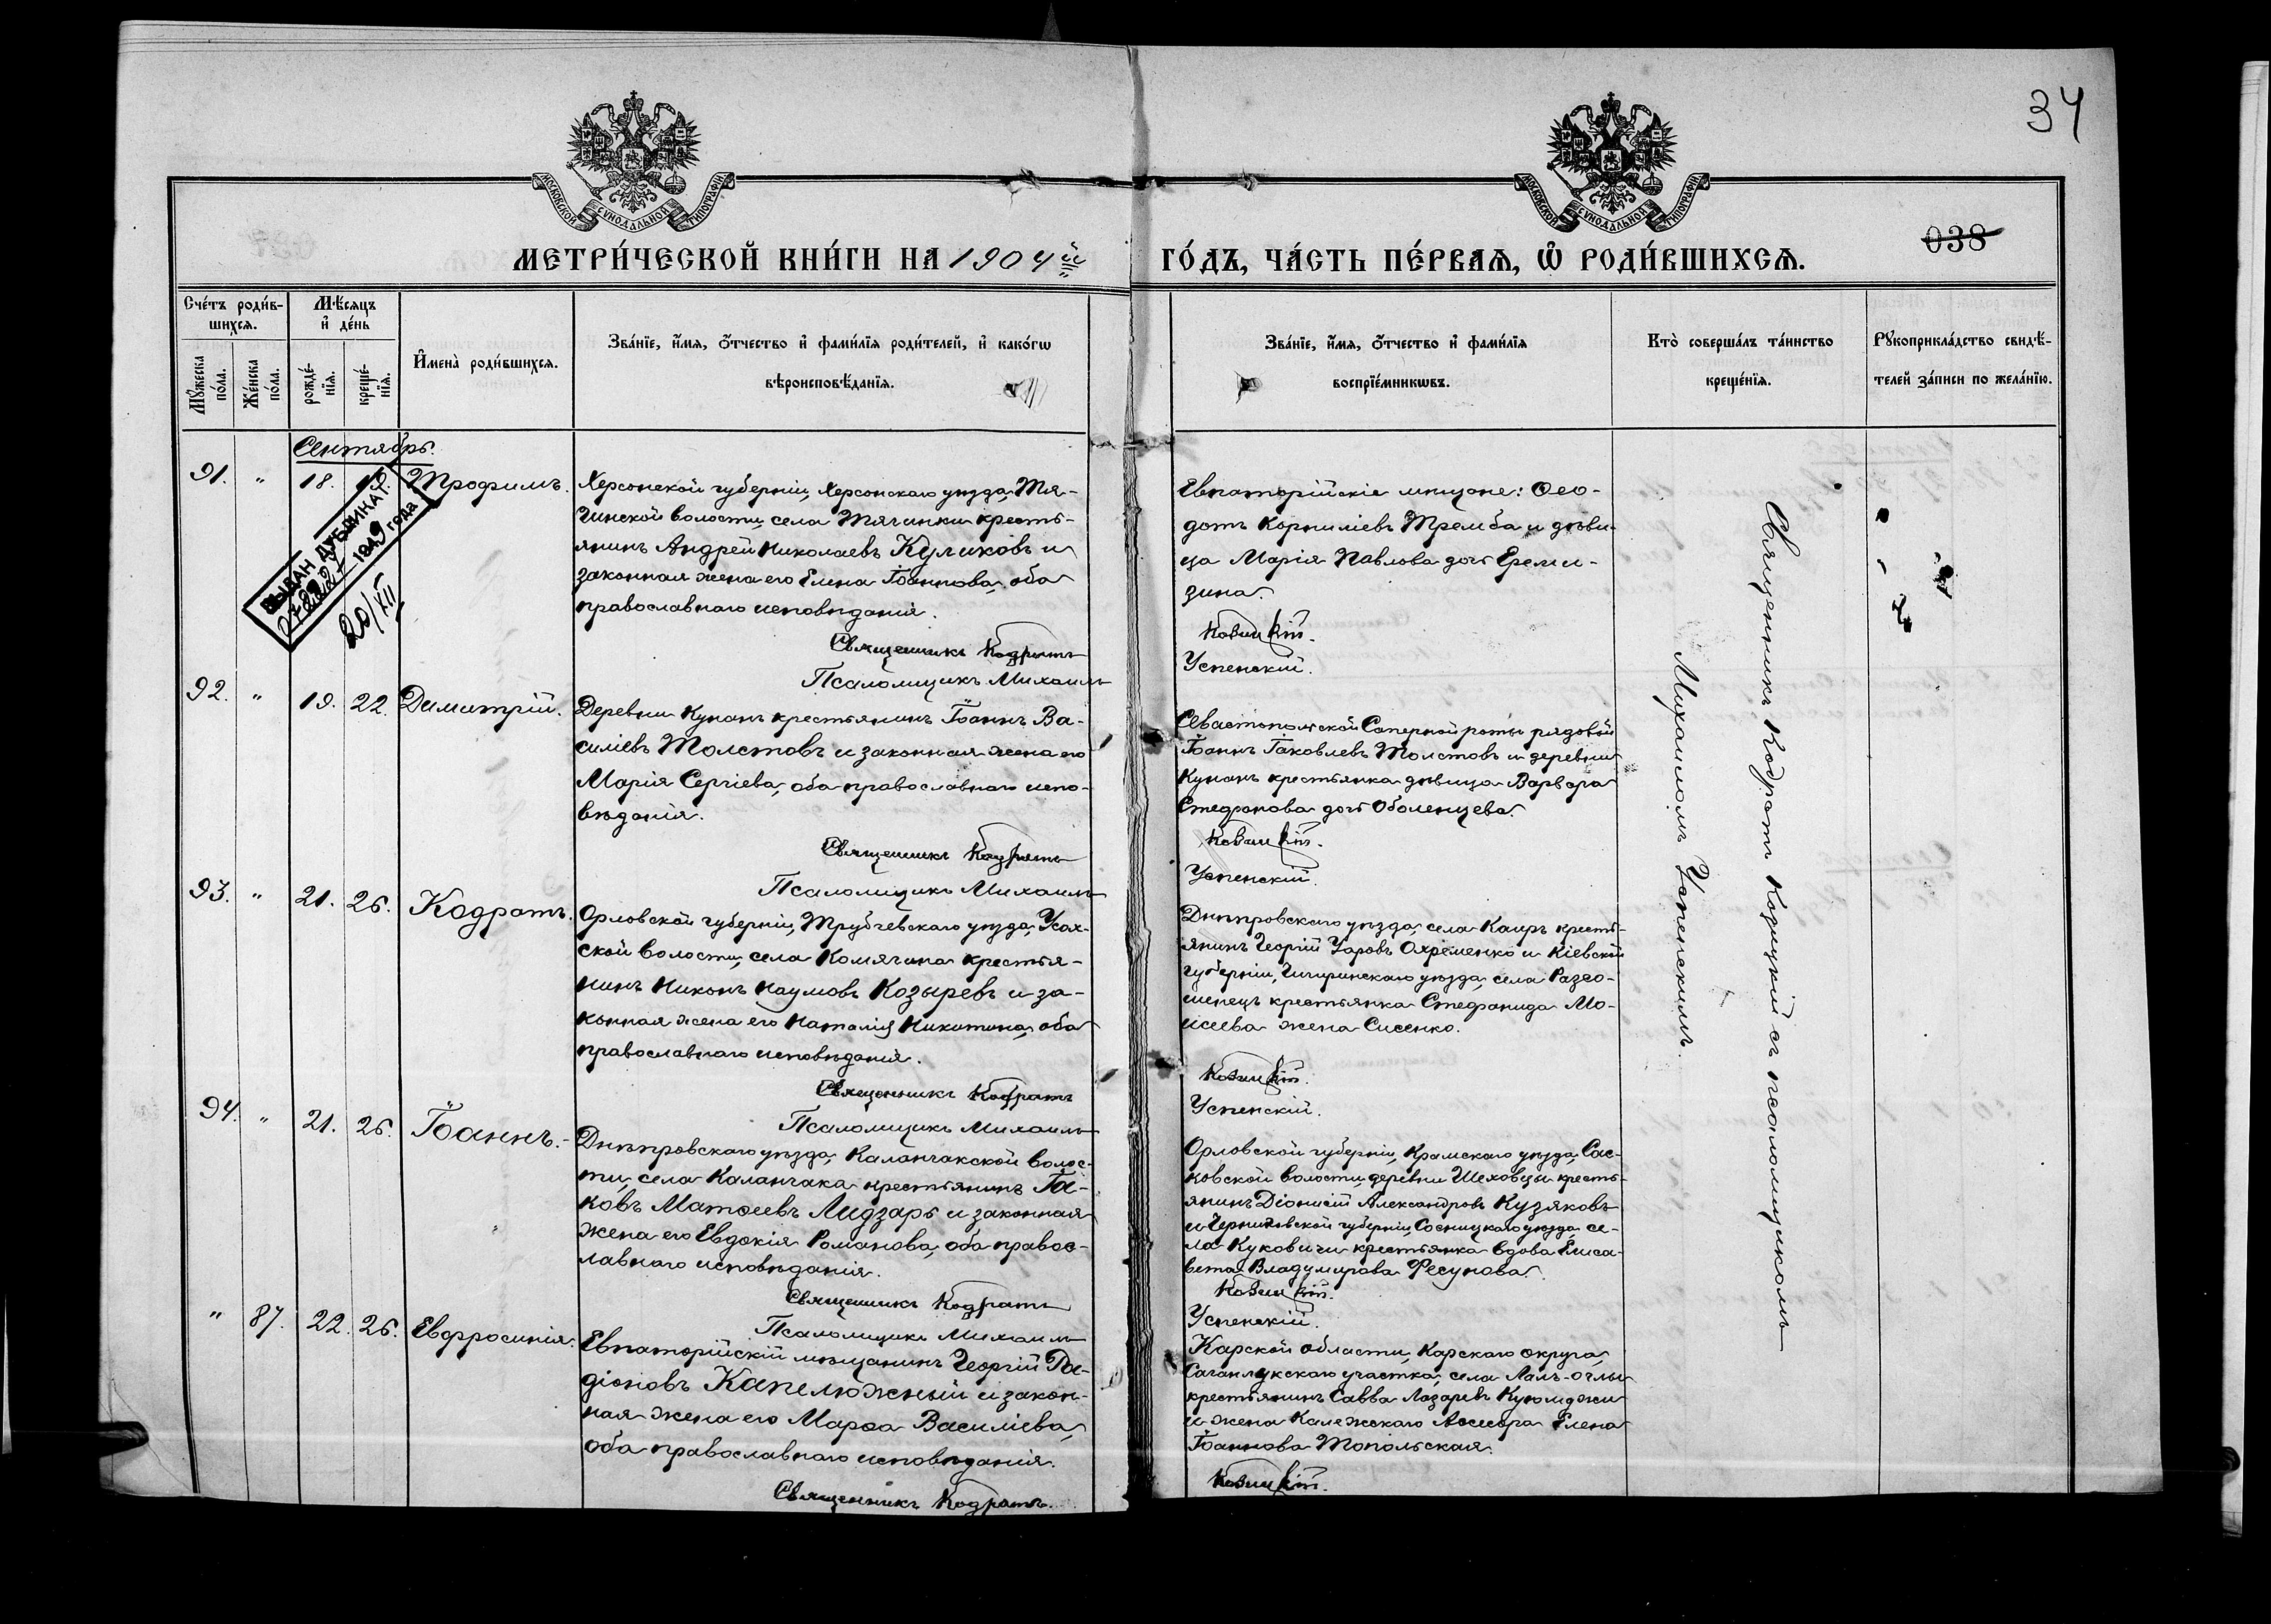 34
038
МОСКОВСКОЙ СѴНОДАЛЬНОЙ ТИПОГРАФІИ
МОСКОВСКОЙ СѴНОДАЛЬНОЙ ТИПОГРАФІИ
МЕТРИ́ЧЕСКОЙ КНИ́ГИ НА 1904й ГО́ДЪ, ЧА́СТЬ ПЕ́РВАѦ, Ѡ҆ РОДИ́ВШИХСѦ.
Сче́тъ роди́в-
шихсѧ.
Мꙋ́жеска
по́ла.
Же́нска
по́ла.
Мѣ́сѧцъ
и҆ де́нь
рожде́-
нїѧ.
креще́-
нїѧ.
И҆мена̀ роди́вшихсѧ.
Зва́нїе, и҆́мѧ, ѻ҆́тчество и҆ фами́лїѧ роди́телей, и҆ како́гѡ
вѣроисповѣ́данїѧ.
Зва́нїе, и҆́мѧ, ѻ҆́тчество и҆ фами́лїѧ
воспрїе́мникѡвъ.
Кто̀ соверша́лъ та́инство
креще́нїѧ.
Рꙋкоприкла́дство свидѣ́-
телей за́писи по жела́нїю.
Сентябрь.
91. " 18. 19. Трофимъ.
Херсонской губерніи, Херсонскаго уѣзда, Тя-
гинской волости, села Тягинки кресть-
янинъ Андрей Николаевъ Куликовъ и
законная жена его Елена Іоаннова, оба
православнаго исповѣданія.
Священникъ Кодратъ
Псаломщикъ Михаилъ
Евпаторійскіе мѣщане: Ѳео-
дотъ Корниліевъ Тремба и дѣви-
ца Марія Павлова дочь Ереми-
зина.
Успенскій.
ВЫДАН ДУБЛИКАТ
1949 года
20/XII
92. " 19. 22. Димитрій.
Деревни Кунанъ крестьянинъ Іоаннъ Ва-
силіевъ Толстовъ и законная жена его
Марія Сергіева, оба православнаго испо-
вѣданія.
Священникъ Кодратъ
Псаломщикъ Михаилъ
Севастопольской Саперной роты рядовой
Іоаннъ Іаковлевъ Толстовъ и деревни
Кунанъ крестьянка дѣвица Варвара
Стефанова дочь Оболенцева.
Успенскій.
93. " 21. 26. Кодратъ.
Орловской губерніи, Трубчевскаго уѣзда, Усох-
ской волости, села Комягина крестья-
нинъ Никонъ Наумовъ Козыревъ и за-
конная жена его Наталія Никитина, оба
православнаго исповѣданія.
Священникъ Кодратъ
Псаломщикъ Михаилъ
Днѣпровскаго уѣзда, села Каиръ кресть-
янинъ Георгій Уаровъ Охрѣменко и Кіевской
губерніи, Чигиринскаго уѣзда, села Разсо-
шенецъ крестьянка Стефанида Мо-
исеева жена Сисенко.
Успенскій.
94. " 21. 26. Іоаннъ.
Днѣпровскаго уѣзда, Каланчакской волос-
ти, села Каланчака крестьянинъ Іа-
ковъ Матѳеевъ Лидзарь и законная
жена его Евдокія Романова, оба правос-
лавнаго исповѣданія.
Священникъ Кодратъ
Псаломщикъ Михаилъ
Орловской губерніи, Крамскаго уѣзда, Сас-
ковской волости, деревни Шеховцы кресть-
янинъ Діонисій Александровъ Кузяковъ
и Черниговской губерніи, Сосницкаго уѣзда, се-
ла Куковичи крестьянка вдова Елиса-
вета Владимірова Фесунова.
Успенскій.
" 87. 22. 26. Евфросинія.
Евпаторійскій мѣщанинъ Георгій Ро-
діоновъ Капелюжный и закон-
ная жена его Марѳа Василіева,
оба православнаго исповѣданія.
Священникъ Кодратъ
Карской области, Карскаго округа,
Саганлукскаго участка, села Лалъ-оглы
крестьянинъ Савва Лазаревъ Куюмджи
и жена Калежскаго Ассесора Елена
Іоаннова Топольская.
Священникъ Кодратъ Козицкій съ псаломщикомъ
Михаиломъ Успенскимъ.